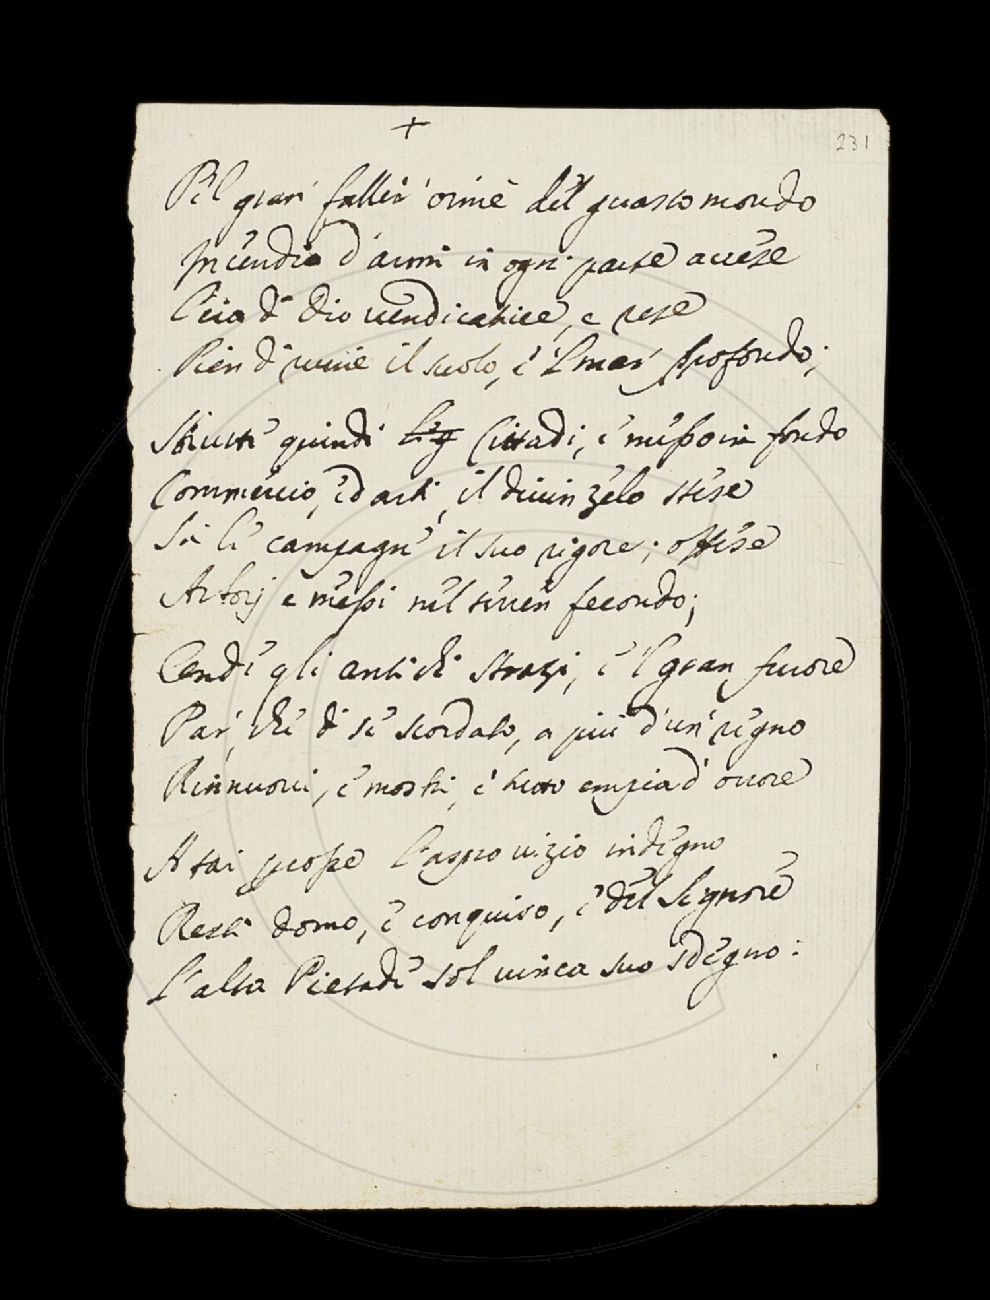 +
231
Pel gran fallir oimè del guasto mondo
Incendio d'armi in ogni parte accese
L'ira di Dio vendicatrice, e rese
Pien di ruine il suolo, e 'l mar profondo;
Strutte quindi Cittadi, e messo in fondo
Commercio, ed arti, il divin zelo stese
Su le campagne il suo rigore; offese
e messi nel terren fecondo;
Rendè gli antichi strazi, e 'l gran furore
Par, che di se scordato, a più d'un regno
Rinnuovi, e mostri, e tutto empia d'orrore
A tai scosse l'aspro vizio indegno
Resti domo, e conquiso, e del Signore
L'alta Pietade sol vinca suo sdegno: